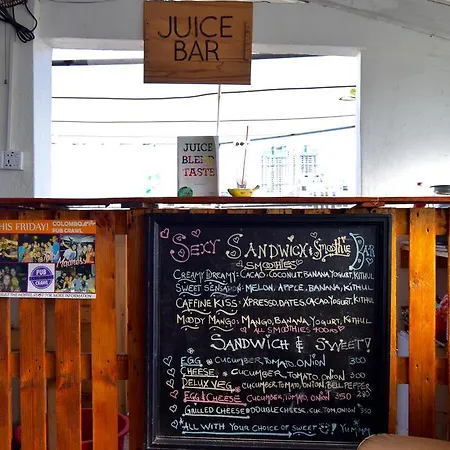 JUICE
BAR
JUICE
BLEND
TASTE
THIS FRIDAY!
COLOMBO
PUB CRAWL
Madness
PUB
CRAWL
FOR MORE INFORMATION
SEXY SANDWICH & SMOOTHIE BAR
SMOOTHIES
CREAMY DREAMY: CACAO, COCONUT, BANANA, YOGURT, KITHUL
SWEET SENSATION: MELON, APPLE, BANANA, KITHUL
CAFFINE KISS: XPRESSO, DATES, CACAO, YOGURT, KITHUL
MOODY MANGO: MANGO, BANANA, YOGURT, KITHUL
ALL SMOOTHIES 400RS
SANDWICH & SWEET!
EGG & CUCUMBER, TOMATO, ONION 300
CHEESE, & CUCUMBER, TOMATO ONION 350
DELUX VEG, & CUCUMBER, TOMATO, ONION, BELL PEPPER 280
EGG & CHEESE CUCUMBER, TOMATO, ONION 350
GRILLED CHEESE & DOUBLE CHEESE, CUC, TOM, ONION 380
ALL WITH YOUR CHOICE OF SWEET! YUMMM